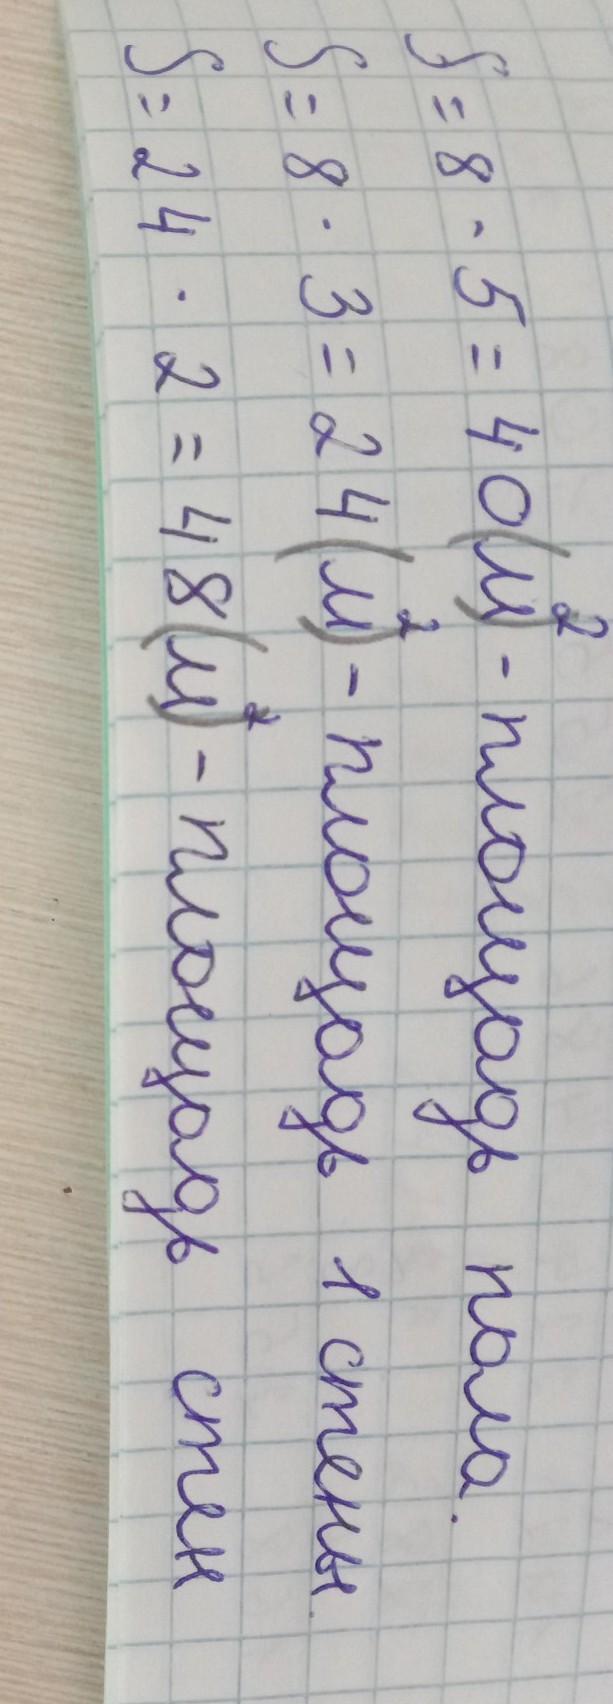 S = 8 · 5 = 40 (м)² - площадь пола.
S = 8 · 3 = 24 (м)² - площадь 1 стены.
S = 24 · 2 = 48 (м)² - площадь стен